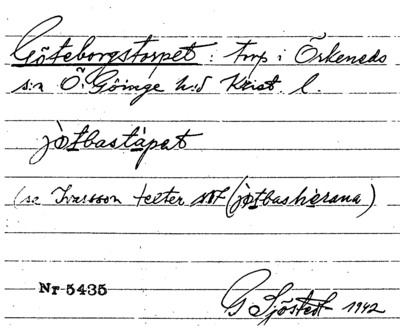 Göteborgstorpet: torp i Örkeneds
s:n Ö. Göinge h:d Krist. l.
jòtbastàpet
(se Ivarsson texter 107 (jòtbashèrana)
Nr 5435
G Sjöstedt 1942